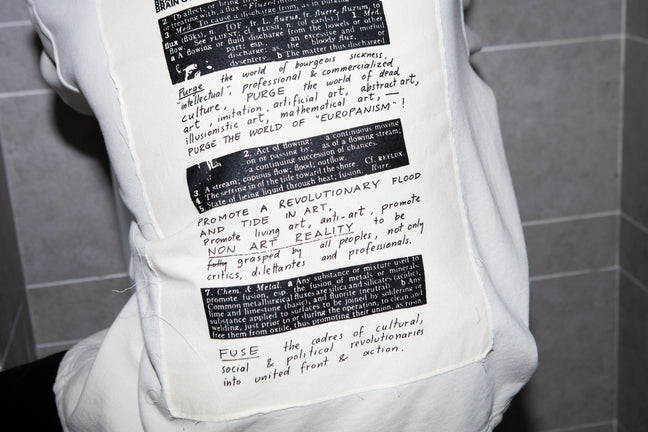 2. To affect, or bring
treating with, a flux." Fluxed
3. Med. To cause a discharge from, as in purging.
flux (flŭks), n. [OF., fr. L. fluxus, fr. fluere, fluxum, to
flow. See FLUENT; cf. FLUSH, n. (of cards).] 1. Med.
a A flowing or fluid discharge from the bowels or other
part; esp., an excessive and morbid
discharge; as, the bloody flux, or
dysentery. b The matter thus discharged.
Purge the world of bourgeois sickness,
"intellectual", professional & commercialized
culture, PURGE the world of dead
art, imitation, artificial art, abstract art,
illusionistic art, mathematical art, —
PURGE THE WORLD OF "EUROPANISM"!
2. Act of flowing: a continuous moving
on or passing by, as of a flowing stream;
a continuing succession of changes.
3. A stream; copious flow; flood; outflow.
4. The setting in of the tide toward the shore. Cf. REFLUX.
5. State of being liquid through heat; fusion. Rare.
PROMOTE A REVOLUTIONARY FLOOD
AND TIDE IN ART,
Promote living art, anti-art, promote
NON ART REALITY to be
fully grasped by all peoples, not only
critics, dilettantes and professionals.
7. Chem. & Metal. a Any substance or mixture used to
promote fusion, esp. the fusion of metals or minerals.
Common metallurgical fluxes are silica and silicates (acidic),
lime and limestone (basic), and fluorite (neutral). b Any
substance applied to surfaces to be joined by soldering or
welding, just prior to or during the operation, to clean and
free them from oxide, thus promoting their union, as rosin.
FUSE the cadres of cultural,
social & political revolutionaries
into united front & action.